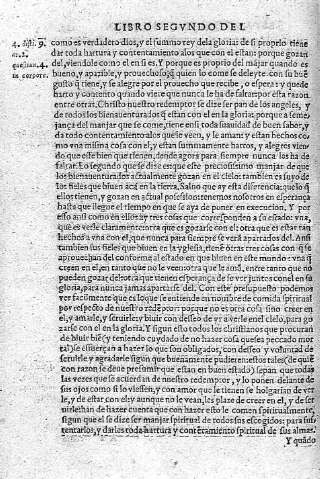 LIBRO SEGVNDO DEL
como es verdadero dios, y el summo rey dela gloria: de si proprio tiene
dar toda hartura y contentamiento alos que con el estan: porque gozan
del, viendole como el en si es. Y porque es proprio del májar quando es
bueno, y apazible, y prouechoso, q̃ quien lo come se deleyte con su bõ
gusto q̃ tiene, y se alegre por el prouecho que recibe, o espera: y quede
harto y contento quando viene que nunca le ha de faltar: por esta razon
entre otras, Christo nuestro redemptor se dize ser pan de los angeles, y
de todos los bienauenturados q̃ estan con el en la gloria: porque a seme-
jança del manjar que se come, tiene en si toda suauidad de buen sabor, y
da todo contentamiento alos que le veen, y le aman: y estan hechos co-
mo vna misma cosa con el, y estan summamente hartos, y alegres vien-
do que este bien que tienen, donde agora para siempre nunca les ha de
faltar. Lo segundo que se dize es que este preciosissimo manjar de que
los bienauenturados actualmente gozan en el cielo: tambien es suyo de
los fieles que biuen aca en la tierra. Saluo que ay esta diferencia: que lo q̃
ellos tienen, y gozan en actual possession: tenemos nosotros en esperança
hasta que llegue el tiempo en que se aya de poner en execucion. Y por
esso assi como en ellos ay tres cosas que corresponden a su estado: vna,
que es verle claramente: otra que es gozarse con el: otra que es estar tan
hechos a vna con el, que nunca para siempre se veran apartados del. Assi
tambien los fieles que biuen en la yglesia, tienē otras tres cosas con q̃ se
aprouechan del conforme al estado en que biuen en este mundo: vna q̃
creen en el, en tanto que no le veen: otra que le amã, entre tanto que no
pueden gozar del: otra q̃ tienen esperança de se ver juntos con el en su
gloria, para nunca jamas apartarse del. Con este presupuesto podemos
ver facilmente que es lo que se entiende en nombre de comida spiritual
por respecto de nuestro redēptor: porque no es otra cosa sino creer en
el, y amarle, y seruirle y biuir con desseo de yr a verle en el cielo, para go
zarse con el en la gloria. Y segun esto todos los christianos que procuran
de biuir biē (y teniendo cuydado de no hazer cosa que sea peccado mor
tal) se esfuerçan a hazer lo que son obligados, con desseo y voluntad de
seruirle y agradarle sigun que buenamente pudieren: estos tales (de quiē
con razon se deue presumir que estan en buen estado) sepan que todas
las vezes que se acuerdan de nuestro redemptor, y lo ponen delante de
sus ojos como si lo viessen, y con amor que le tienen se holgarian de ver
le, y de estar con el: y aunque no le vean, les plaze de creer en el, y de ser
uirle: han de hazer cuenta que con hazer esto le comen spiritualmente,
sigun que el se dize ser manjar spiritual de todos sus escogidos: para sus-
tentarlos, y darles toda hartura y contētamiento spiritual de sus almas.
Y quãdo